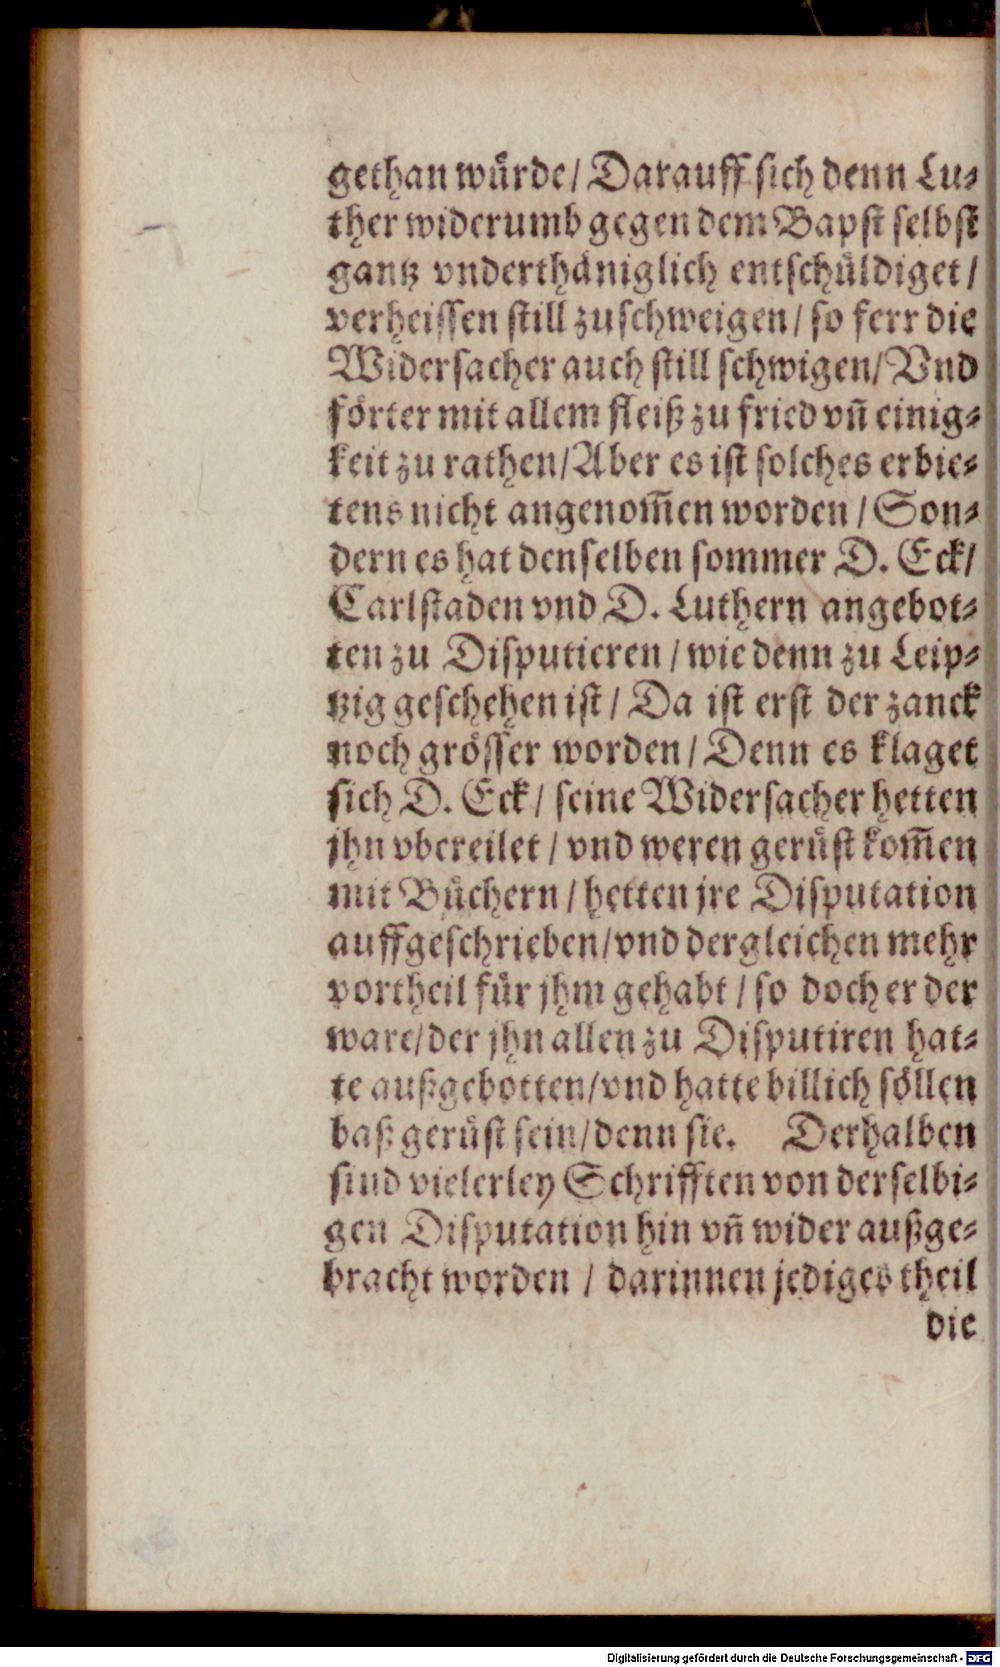 gethan würde / Darauff sich denn Lu-
ther widerumb gegen dem Bapst selbst
gantz vnderthäniglich entschüldiget /
verheissen still zuschweigen / so ferr die
Widersacher auch still schwigen / Vnd
förter mit allem fleiß zu fried vñ einig-
keit zu rathen / Aber es ist solches erbie-
tens nicht angenom̃en worden / Son-
dern es hat denselben sommer D. Eck /
Carlstaden vnd D. Luthern angebot-
ten zu Disputieren / wie denn zu Leip-
tzig geschehen ist / Da ist erst der zanck
noch grösser worden / Denn es klaget
sich D. Eck / seine Widersacher hetten
jhn vbereilet / vnd weren gerüst kom̃en
mit Büchern / hetten jre Disputation
auffgeschrieben / vnd dergleichen mehr
vortheil für jhm gehabt / so doch er der
ware / der jhn allen zu Disputiren hat-
te außgebotten / vnd hatte billich söllen
baß gerüst sein / denn sie. Derhalben
sind vielerley Schrifften von derselbi-
gen Disputation hin vñ wider außge-
bracht worden / darinnen jediges theil
die
Digitalisierung gefördert durch die Deutsche Forschungsgemeinschaft - DFG